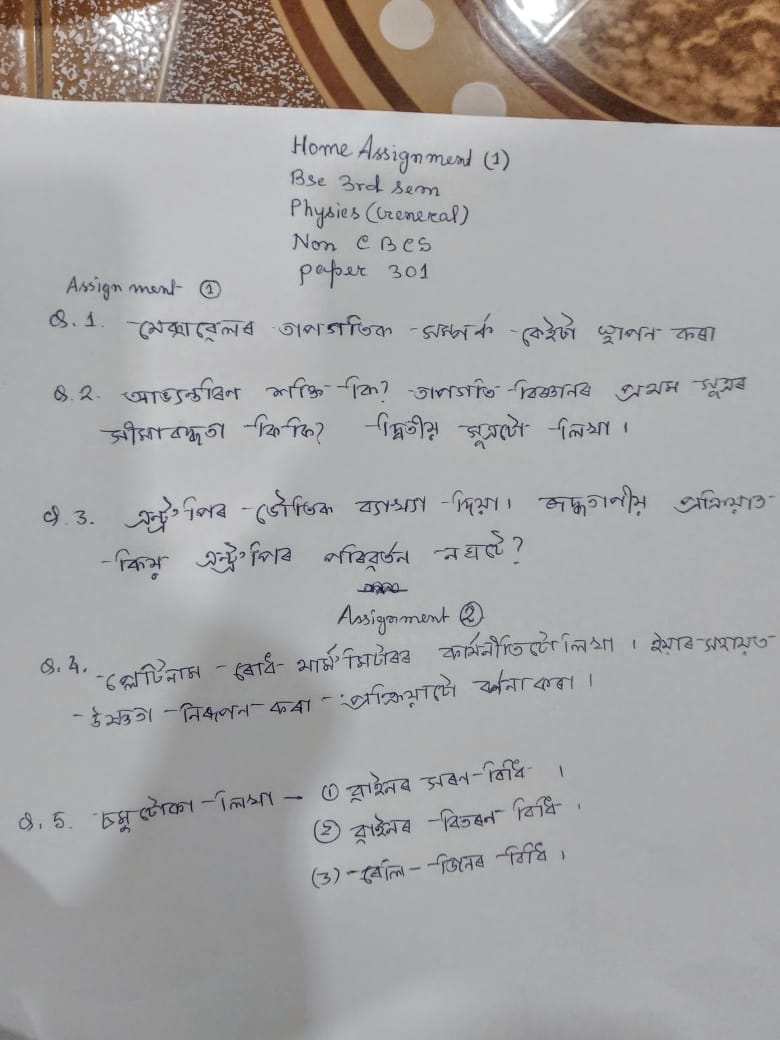 Home Assignment (1)
Bsc 3rd sem
Physics (General)
Non C B C S
paper 301
Assignment ①
Q. 1. মেক্সৱেলৰ তাপগতিক সম্পৰ্ক কেইটা স্থাপন কৰা
Q. 2. আভ্যন্তৰিণ শক্তি কি? তাপগতি বিজ্ঞানৰ প্ৰথম সূত্ৰৰ
সীমাবদ্ধতা কি কি? দ্বিতীয় সূত্ৰটো লিখা।
Q. 3. এন্ট্ৰ'পিৰ ভৌতিক ব্যাখ্যা দিয়া। ৰুদ্ধতাপীয় প্ৰক্ৰিয়াত
কিয় এন্ট্ৰ'পিৰ পৰিৱৰ্তন নঘটে?
Assignment ②
Q. 4. প্লেটিনাম ৰোধ থাৰ্ম'মিটাৰৰ কাৰ্যনীতিটো লিখা। ইয়াৰ সহায়ত
উষ্ণতা নিৰূপন কৰা প্ৰক্ৰিয়াটো বৰ্ণনা কৰা।
Q. 5. চমুটোকা লিখা – ① ৱাইনৰ সৰণ বিধি।
② ৱাইনৰ বিতৰণ বিধি।
(3) ৰেলি - জিনৰ বিধি।